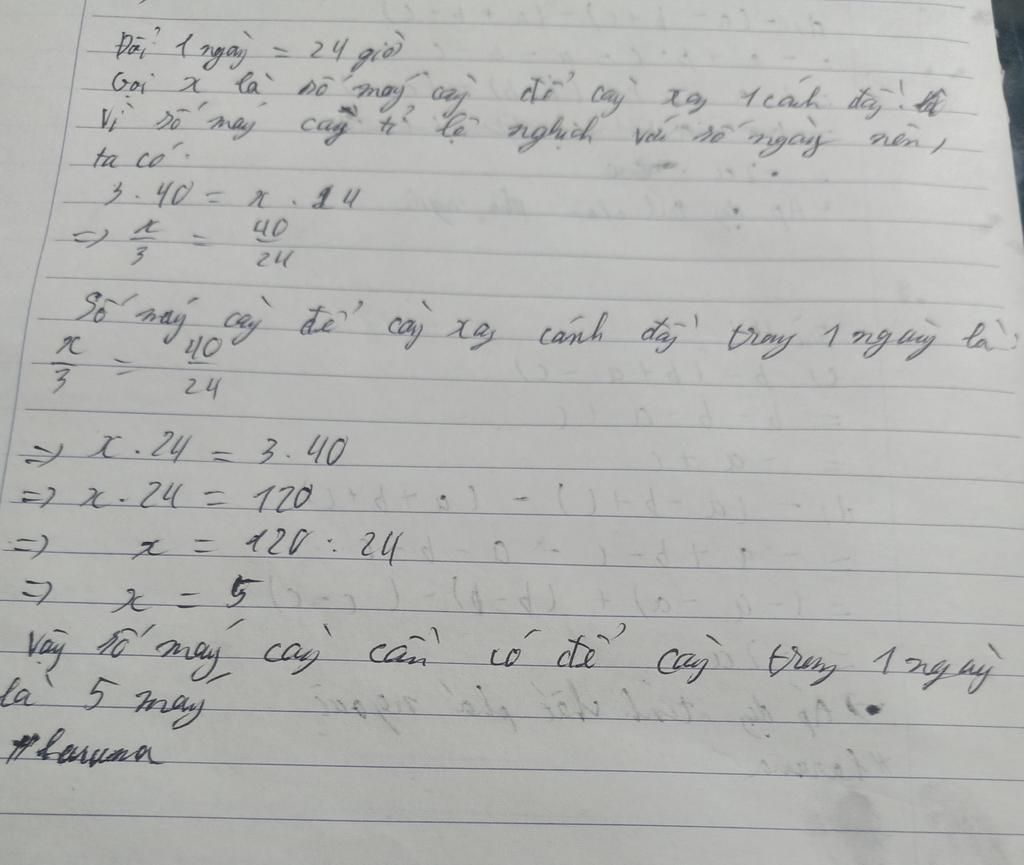 Đổi 1 ngày = 24 giờ
Gọi x là số máy cày để cày xog 1 cánh đồng
Vì số máy cày tỉ lệ nghịch với số ngày nên,
ta có:
3 . 40 = x . 24
=> x/3 = 40/24
Số máy cày để cày xog cánh đồng trong 1 ngày là:
x/3 = 40/24
=> x . 24 = 3 . 40
=> x . 24 = 120
=> x = 120 : 24
=> x = 5
Vậy số máy cày cần có để cày trong 1 ngày
là 5 máy